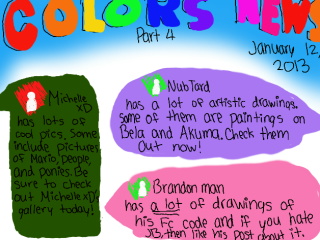 COLORS NEWS
Part 4
January 12,
2013
Michelle
xD
has lots of
cool pics. Some
include pictures
of Mario, People,
and Ponies. Be
sure to check
out MichellexD's
gallery today!
NubTard
has a lot of artistic drawings.
some of them are paintings on
Bela and Akuma. Check them
Out now!
Brandon man
has a lot of drawings of
his Fc code and if you hate
JB, then like his Post about it.